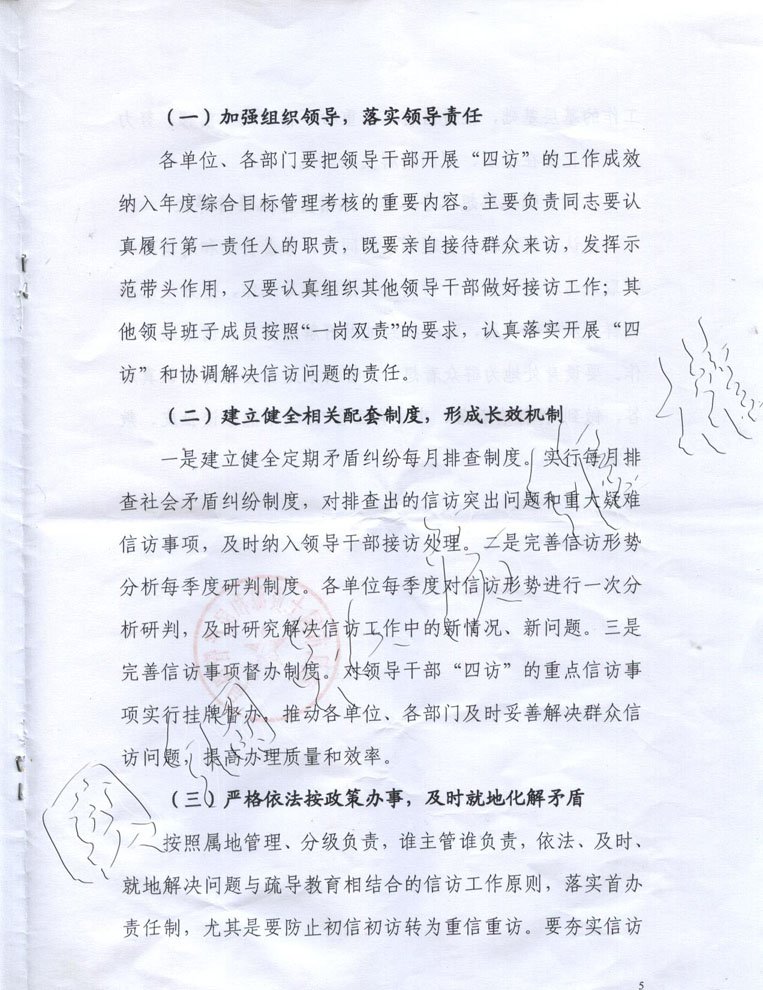 （一）加强组织领导，落实领导责任
各单位、各部门要把领导干部开展“四访”的工作成效
纳入年度综合目标管理考核的重要内容。主要负责同志要认
真履行第一责任人的职责，既要亲自接待群众来访，发挥示
范带头作用，又要认真组织其他领导干部做好接访工作；其
他领导班子成员按照“一岗双责”的要求，认真落实开展“四
访”和协调解决信访问题的责任。
（二）建立健全相关配套制度，形成长效机制
一是建立健全定期矛盾纠纷每月排查制度。实行每月排
查社会矛盾纠纷制度，对排查出的信访突出问题和重大疑难
信访事项，及时纳入领导干部接访处理。二是完善信访形势
分析每季度研判制度。各单位每季度对信访形势进行一次分
析研判，及时研究解决信访工作中的新情况、新问题。三是
完善信访事项督办制度。对领导干部“四访”的重点信访事
项实行挂牌督办，推动各单位、各部门及时妥善解决群众信
访问题，提高办理质量和效率。
（三）严格依法按政策办事，及时就地化解矛盾
按照属地管理、分级负责，谁主管谁负责，依法、及时、
就地解决问题与疏导教育相结合的信访工作原则，落实首办
责任制，尤其是要防止初信初访转为重信重访。要夯实信访
5